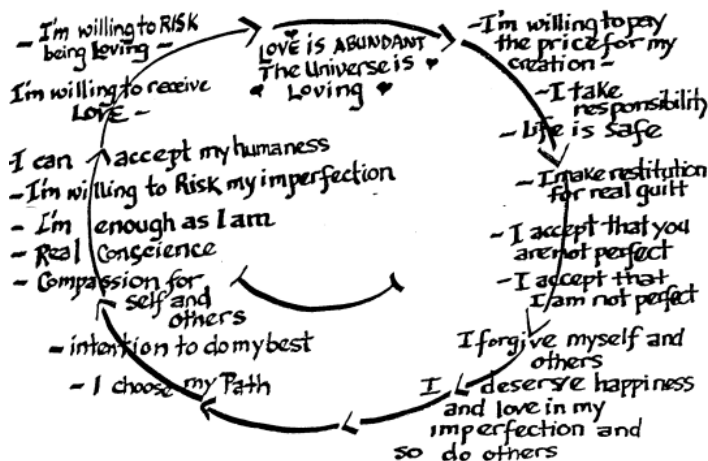 LOVE is ABUNDANT
The Universe is
Loving
- I'm willing to pay
the price for my
creation -
- I take
responsibility
- Life is safe
- I make restitution
for real guilt
- I accept that you
are not perfect
- I accept that
I am not perfect
I forgive myself and
others
I deserve happiness
and love in my
imperfection and
so do others
- I choose my Path
- intention to do my best
- Compassion for
self and
others
- Real Conscience
- I'm enough as I am
- I'm willing to Risk my imperfection
I can accept my humaness
I'm willing to receive
LOVE -
- I'm willing to RISK
being Loving -